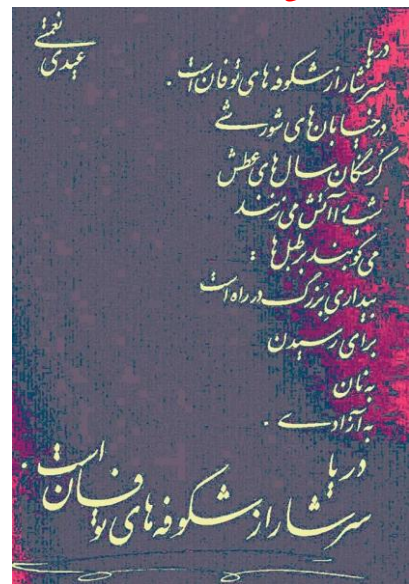 دریا
سرشار از شکوفه های توفان است .
در خیابان های شورشی
گرسنگان سال های عطش
شب را آتش می زنند
می کوبند بر طبل ها :
بیداری بزرگ در راه است
برای رسیدن
به نان
به آزادی .
دریا
سرشار از شکوفه های توفان است .
عیدی نعمتی